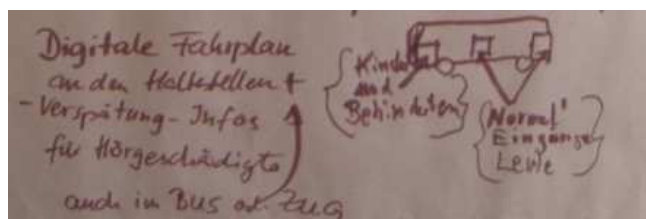 Digitale Fahrplan
an den Haltestellen +
- Verspätung - Infos
für Hörgeschädigte
auch in Bus od. Zug
{ Kinder
und
Behinderten }
{ Normal
Eingänge
Leute }